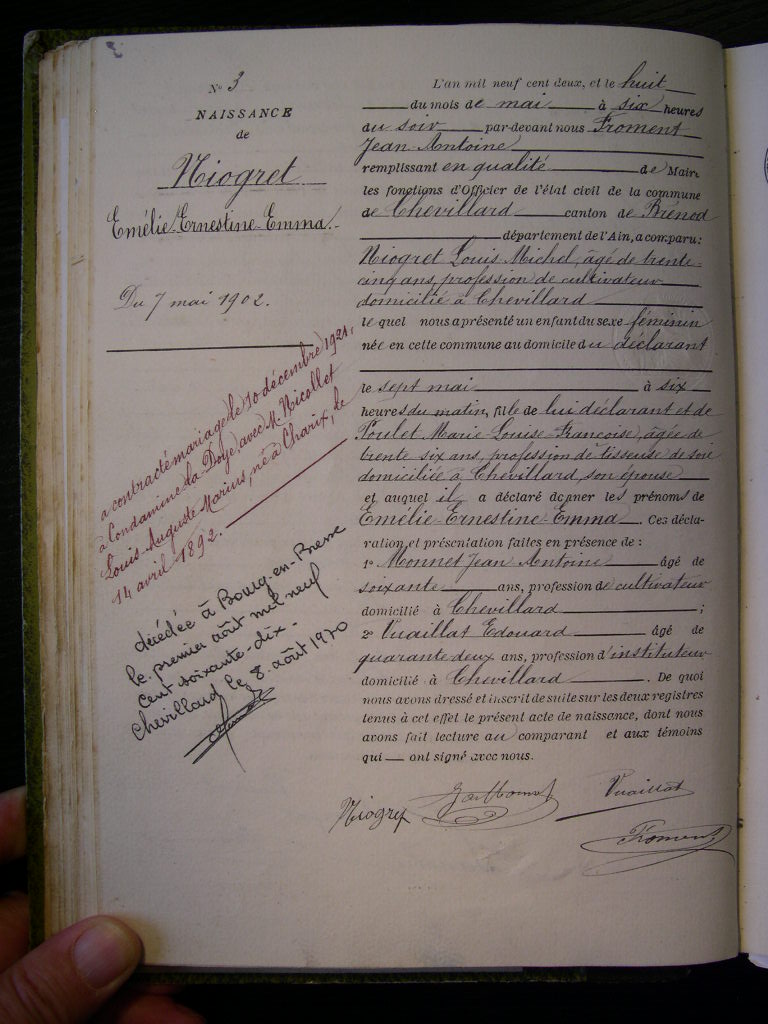 N° 3
NAISSANCE
de
Niogret
Emélie Ernestine Emma.
Du 7 mai 1902.
a contracté mariage le 10 décembre 1921,
à Condamine la Doye, avec M. Nicollet
Louis Auguste Marius, né à Charix, le
14 avril 1892.
décédée à Bourg-en-Bresse
le premier août mil neuf
cent soixante-dix.
Chevillard le 8 août 1970
L'an mil neuf cent deux, et le huit
du mois de mai à six heures
du soir par-devant nous Froment
Jean Antoine
remplissant en qualité de Maire
les fonctions d'Officier de l'état civil de la commune
de Chevillard canton de Brénod
département de l'Ain, a comparu:
Niogret Louis Michel, âgé de trente-
cinq ans, profession de cultivateur
domicilié à Chevillard
le quel nous a présenté un enfant du sexe féminin
née en cette commune au domicile du déclarant
le sept mai à six
heures du matin, fille de lui déclarant et de
Poulet Marie Louise Françoise, âgée de
trente six ans, profession de tisseuse de soie
domiciliée à Chevillard, son épouse
et auquel il a déclaré donner les prénoms de
Emélie Ernestine Emma. Ces décla-
ration et présentation faites en présence de :
1° Monnet Jean Antoine âgé de
soixante ans, profession de cultivateur
domicilié à Chevillard ;
2° Vuaillat Edouard âgé de
quarante deux ans, profession d'instituteur
domicilié à Chevillard. De quoi
nous avons dressé et inscrit de suite sur les deux registres
tenus à cet effet le présent acte de naissance, dont nous
avons fait lecture au comparant et aux témoins
qui ont signé avec nous.
Niogret Monnet Vuaillat
Froment